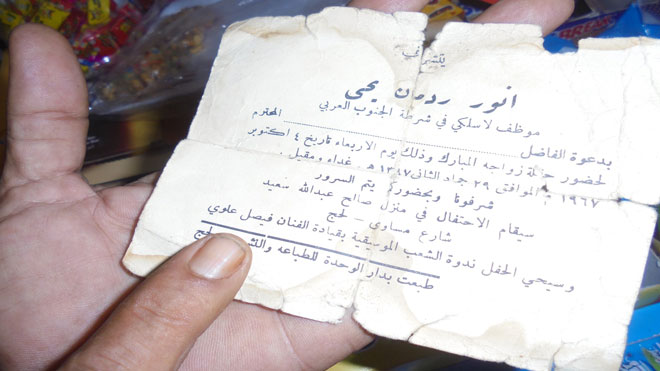 يتشرف
انور ردمان يحيى
موظف لاسلكي في شرطة الجنوب العربي
بدعوة الفاضل المحترم
لحضور حفلة زواجه المبارك وذلك يوم الاربعاء تاريخ ٤ اكتوبر
١٩٦٧ م الموافق ٢٩ جماد الثاني ١٣٤٧ هـ . غداء ومقيل .
شرفونا وبحضوركم يتم السرور
سيقام الاحتفال في منزل صالح عبدالله سعيد
شارع مساوى - لحج
وسيحي الحفل ندوة الشعب الموسيقية بقيادة الفنان فيصل علوي
طبعت بدار الوحدة للطباعه لحج